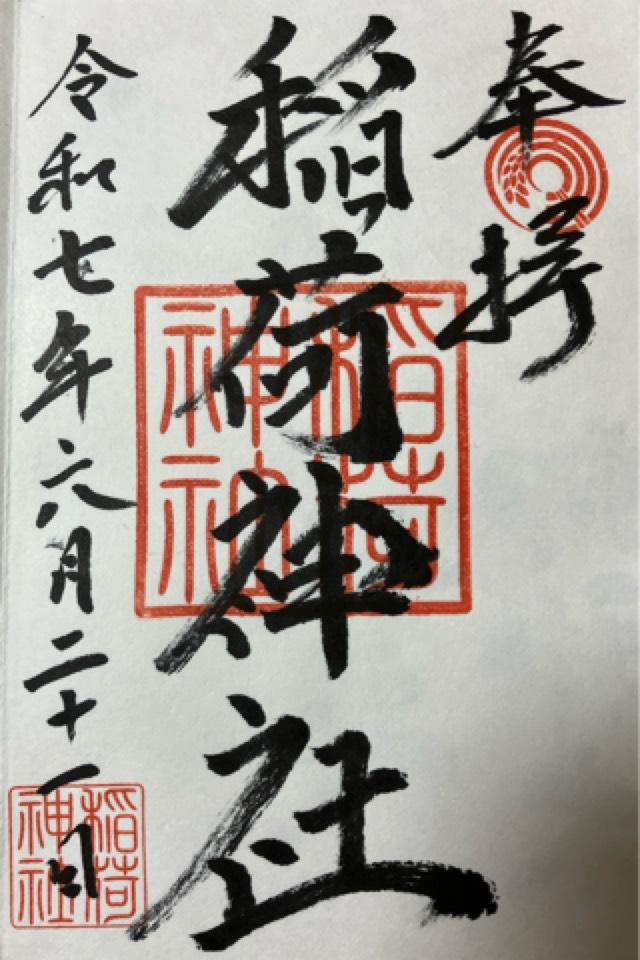 奉拝
稲荷神社
稲荷神社
令和七年六月二十一日
稲荷神社